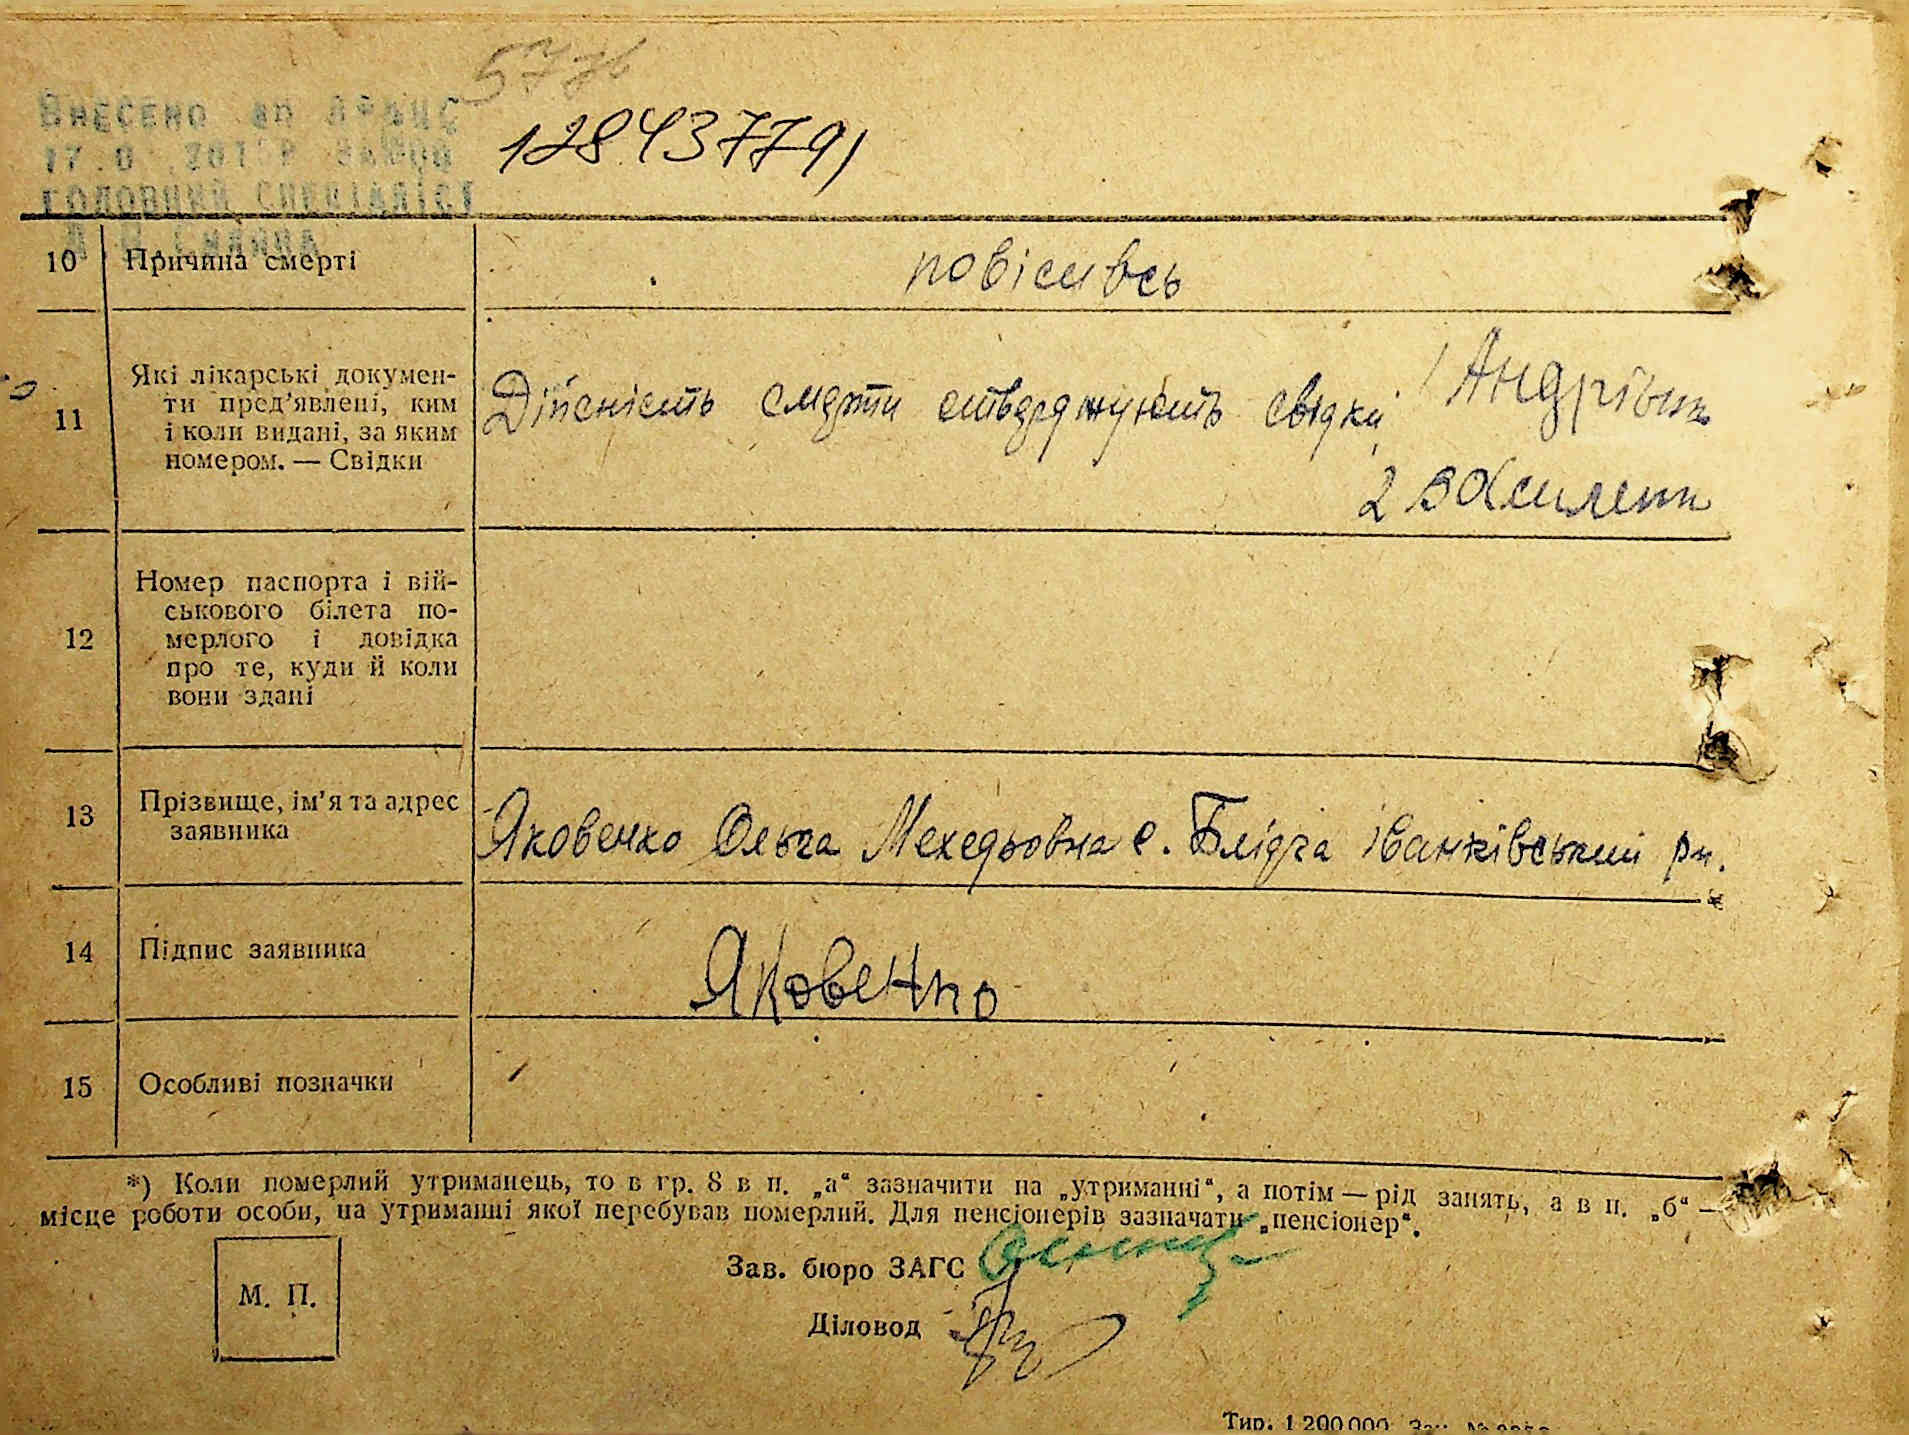 577
Внесено
128437791
головний спеціаліст
10 Причина смерті повісивсь
11 Які лікарські докумен-
ти пред’явлені, ким
і коли видані, за яким
номером. — Свідки
Дійсність смерти стверджують свідки 1 Андрієнк
2 Василенк
12 Номер паспорта і вій-
ськового білета по-
мерлого і довідка
про те, куди й коли
вони здані
13 Прізвище, ім’я та адрес
заявника
Яковенко Ольга Мехедьовна с. Блідча Іванківський рн.
14 Підпис заявника Яковенко
15 Особливі позначки
*) Коли померлий утриманець, то в гр. 8 в п. „а“ зазначити на „утриманні“, а потім — рід занять, а в п. „б“ —
місце роботи особи, на утриманні якої перебував померлий. Для пенсіонерів зазначать „пенсіонер“.
Зав. бюро ЗАГС
М. П.
Діловод
Тир. 1 200 000